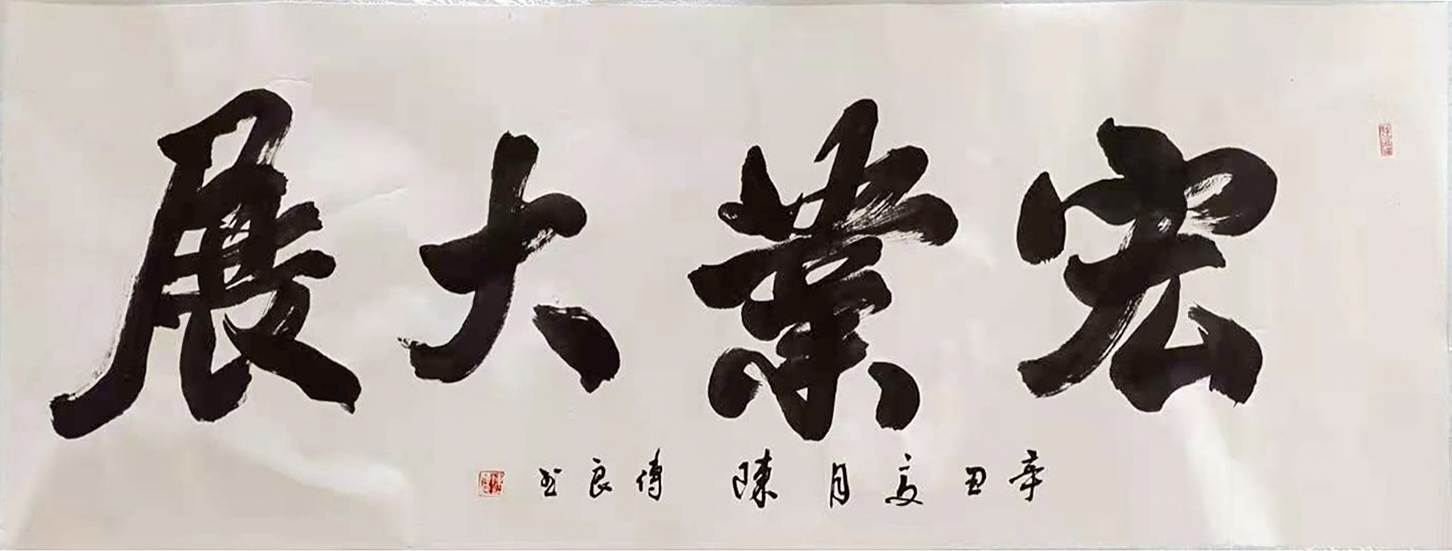 宏業大展
辛丑夏月陳傳良书